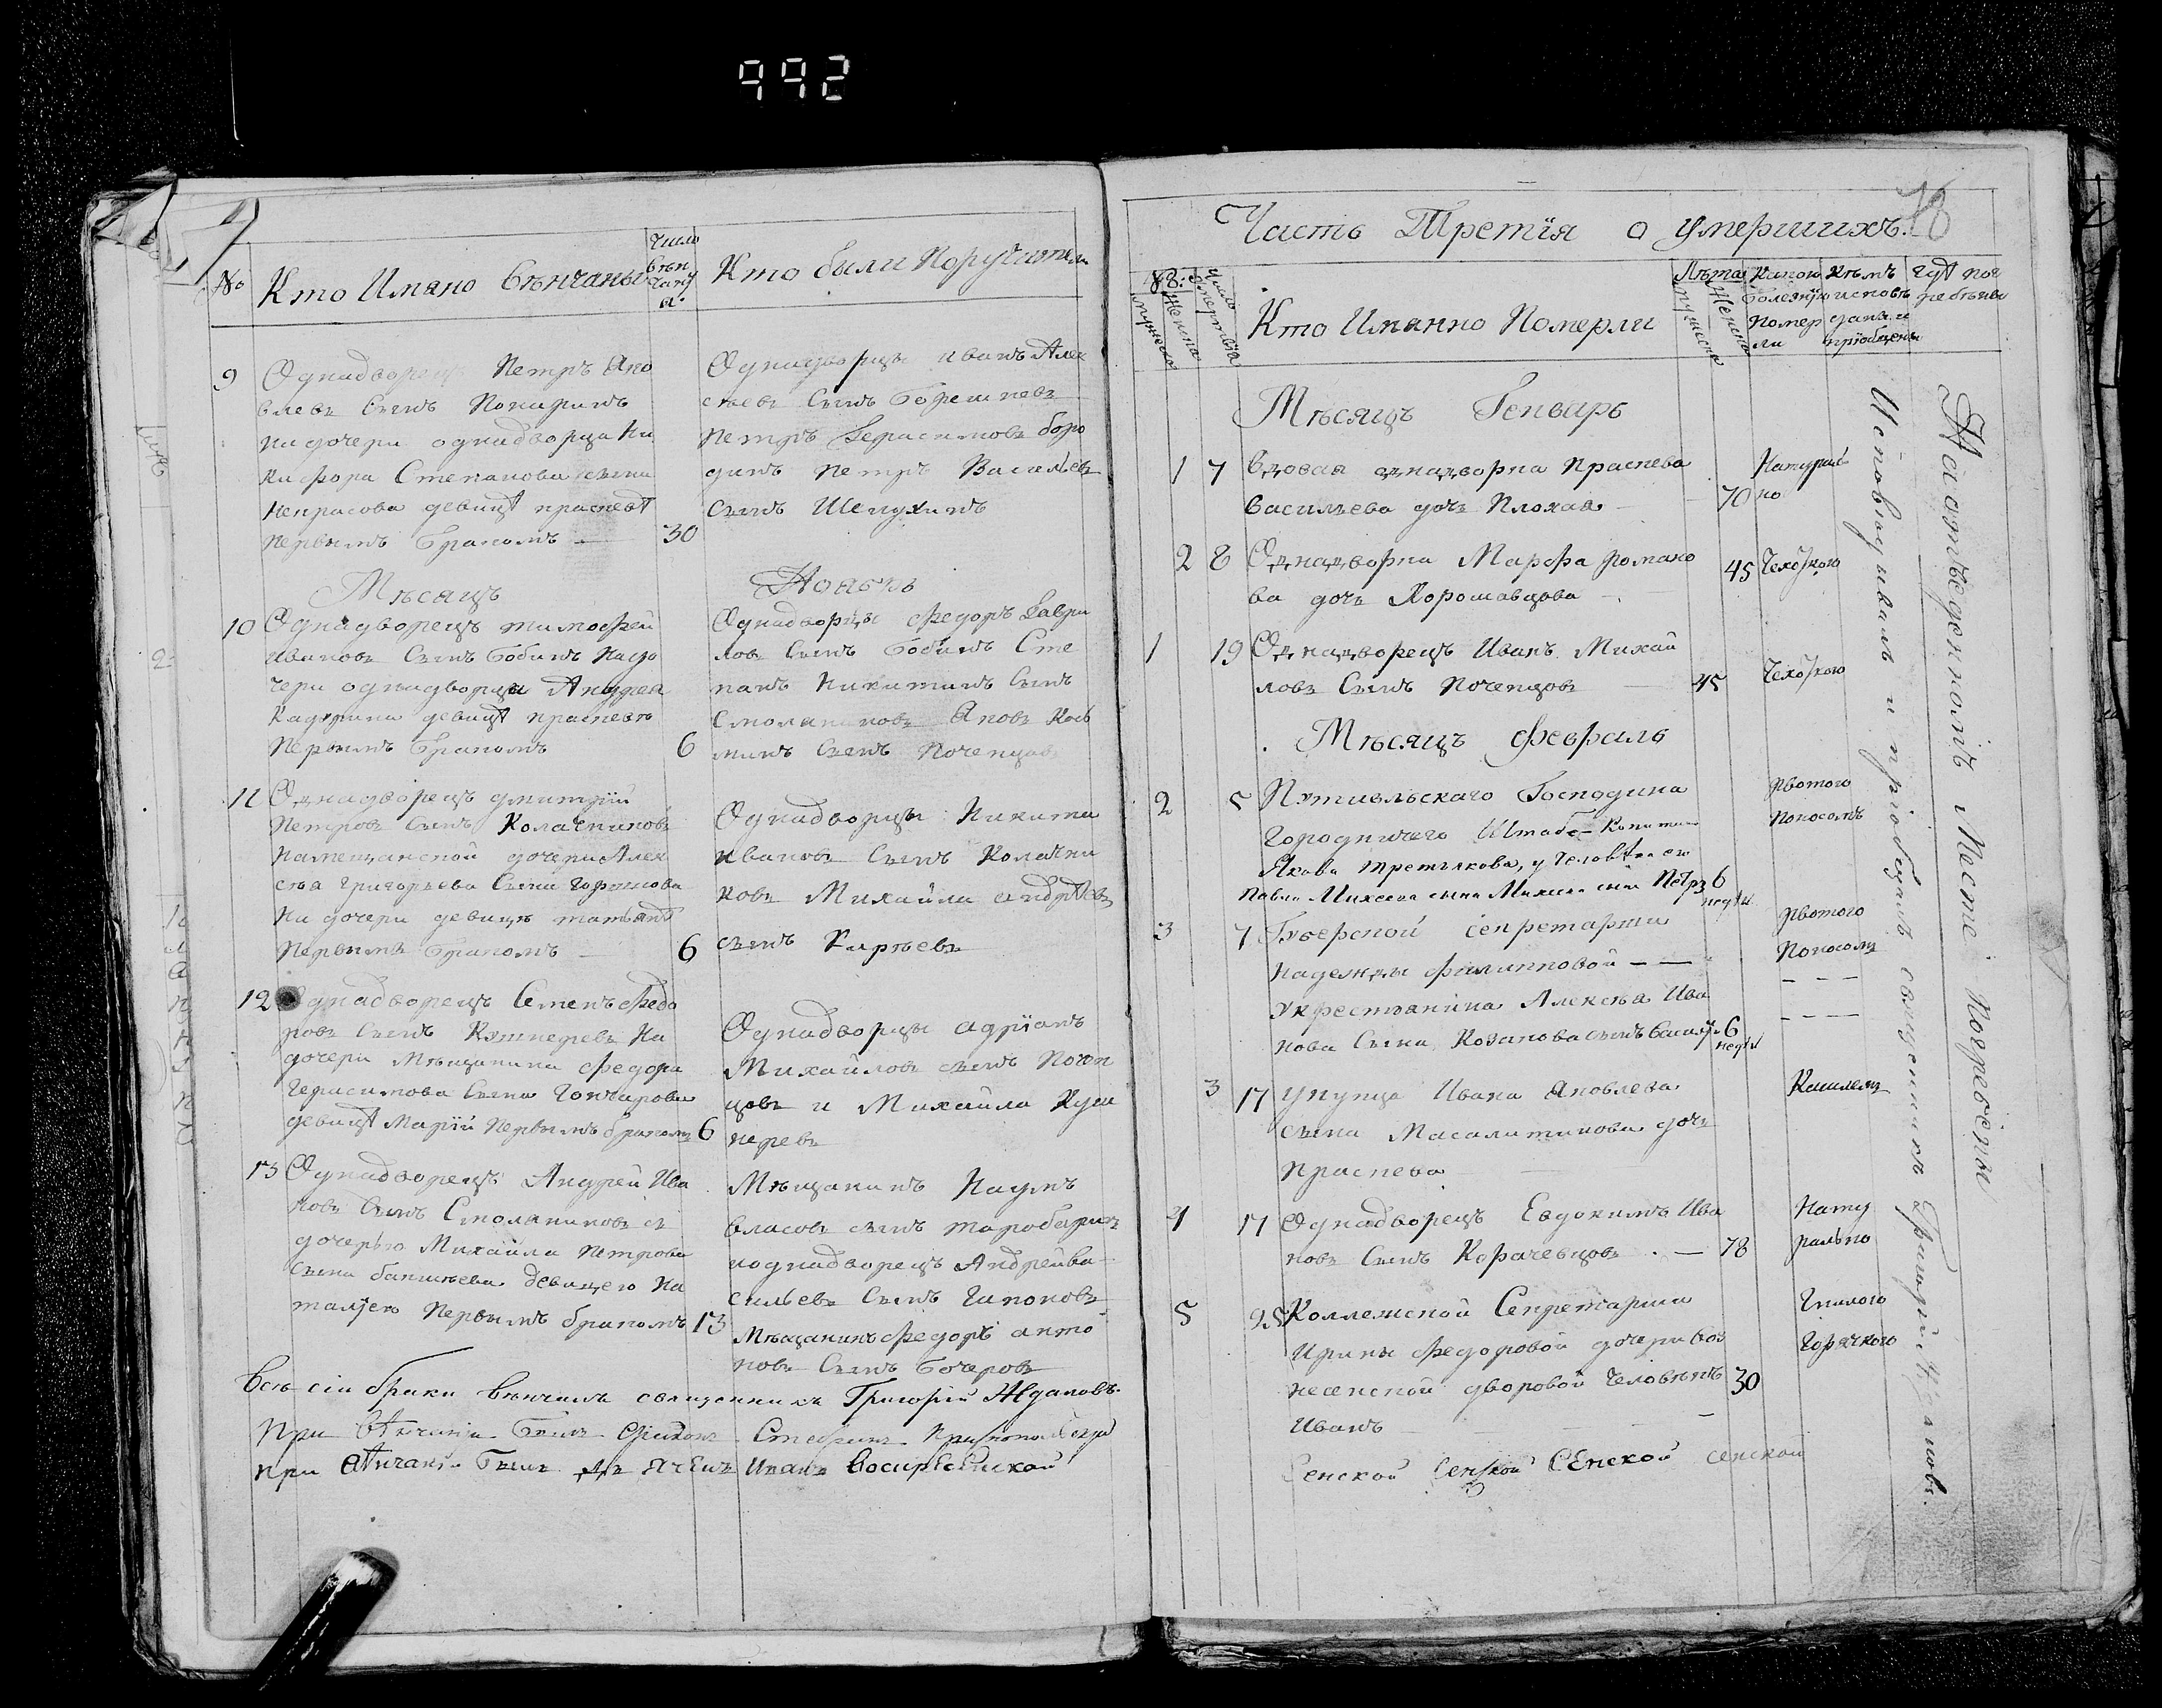 992
№
Кто Имяно Венчаны
Число вен чаня
Кто были Поручители
9
Однадворецъ Петръ Яко
влевъ Сынъ Покиринъ
на дочери однадворца Ни
кифора Степанова сына
Некрасова девицѣ праскевѣ
Первымъ бракомъ —
30
Однадворцы иванъ Алек
сеевъ Сынъ
Петръ Герасимовъ боро
динъ Петръ Васильевъ
Сынъ Шелухинъ
Мѣсяцъ
Ноябрь
10
Однадворецъ тимофей
Ивановъ Сынъ Бобинъ На до
чери однадворца Андрея
девицѣ праскевѣ
Первымъ бракомъ
6
Однадворцы федоръ Гаври
ловъ Сынъ Бобинъ Сте
панъ Никитинъ Сынъ
Смоляниновъ Яковъ Козь
минъ Сынъ Почепцовъ
11
Однадворецъ дмитрій
Петровъ Сынъ Колачниковъ
На мещанской дочери Алек
сея григорьева Сына
на дочери девицѣ татьянѣ
Первымъ бракомъ —
6
Однадворцы Никита
Ивановъ Сынъ Колачни
ковъ Михайла андрѣевъ
сынъ Кирѣевъ
12
Однадворецъ Семенъ Федо
ровъ Сынъ Кушнеревъ На
дочери Мѣщанина федора
Герасимова Сына Гончарова
девицѣ Маріи Первымъ бракомъ
6
Однадворцы адріянъ
Михайловъ сынъ Почеп
цовъ и Михайла Куш
неревъ
13
Однадворецъ Андрей Ива
новъ Сынъ Смоляниновъ съ
дочерью Михайла Петрова
Сына девицею На
таліею Первымъ бракомъ
13
Мѣщанинъ Наумъ
Власовъ сынъ
иоднадворецъ Андрей ва
сильевъ Сынъ Гапоновъ
Мѣщанинъ федоръ анто
новъ Сынъ Бочеровъ
Все сіи браки венчалъ священникъ Григорій Ждановъ.
При вѣнчаніи былъ Діяконъ Стефанъ
При вѣнчаніи былъ дьячекъ Иванъ
Часть Третія о умершихъ.
Число смертвія
мужеска
женска
Кто Имянно Померли
Лѣта
мужеска
женска
Какою болезнію Помер ли
Кѣмъ исповѣ даны и пріобщены
Гдѣ пог ребены
Мѣсяцъ Генварь
1 7 Вдовая однадворка Праскева
Васильева дочь Плохая —
70
Натураль
но
2 8 Однадворка Марфа романо
ва дочь Хорошавцова —
45
Чехоткою
1 19 Однадворецъ Иванъ Михай
ловъ Сынъ Почепцовъ —
45
Чехоткою
Мѣсяцъ февраль
2 5 Путивльскаго Господина
Городничего Штабс-Капитана
Якова третьякова, у человѣка ево
Петръ
6 недѣль
рвотою
Поносомъ
3 7 Губерской секретарши
надежды филипповой — —
укрестьянина Алексѣя Ива
нова Сына Козакова сынъ василей
6 недѣль
рвотою
Поносомъ
3 17 укупца Ивана Яковлева
сына Масалитинова дочь
Праскева
Кашлемъ
4 17 Однадворецъ Евдокимъ Ива
новъ Сынъ Корачевцовъ — 78
Нату
рально
5 25 Коллежской Секретарши
Ирины федоровой дочери Воз
несенской дворовой человѣкъ
Иванъ
30
Гнилою
Горячкою
Сенской Сенской Сенской сенской
Исповедывалъ и пріобщалъ священникъ Григорій Ждановъ.
На отведенномъ Месте Погребены